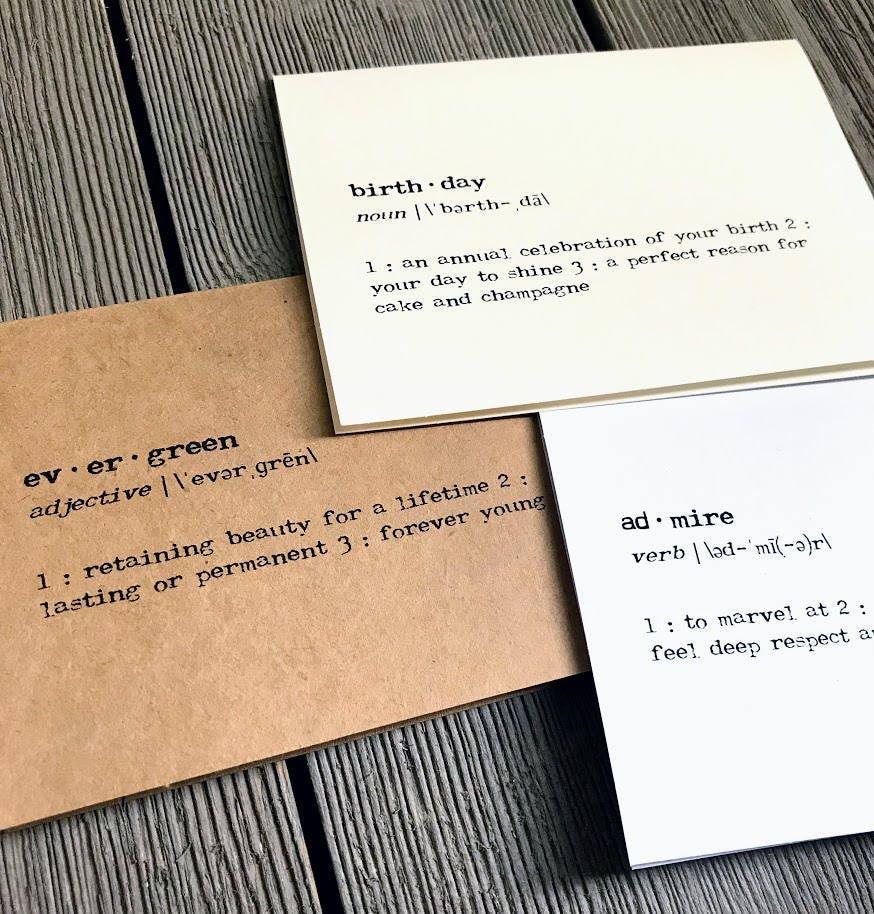 birth·day
noun | \ˈbərth-ˌdā\
1 : an annual celebration of your birth 2 :
your day to shine 3 : a perfect reason for
cake and champagne
ev·er·green
adjective | \ˈevərˌgrēn\
1 : retaining beauty for a lifetime 2 :
lasting or permanent 3 : forever young
ad·mire
verb | \əd-ˈmī(-ə)r\
1 : to marvel at 2 :
feel deep respect